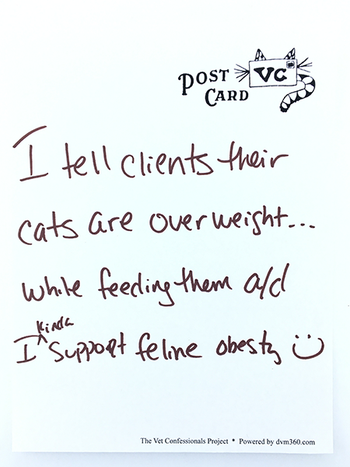 POST
CARD
VC
I tell clients their
cats are overweight...
while feeding them a/d
I kinda support feline obesity
The Vet Confessionals Project • Powered by dvm360.com